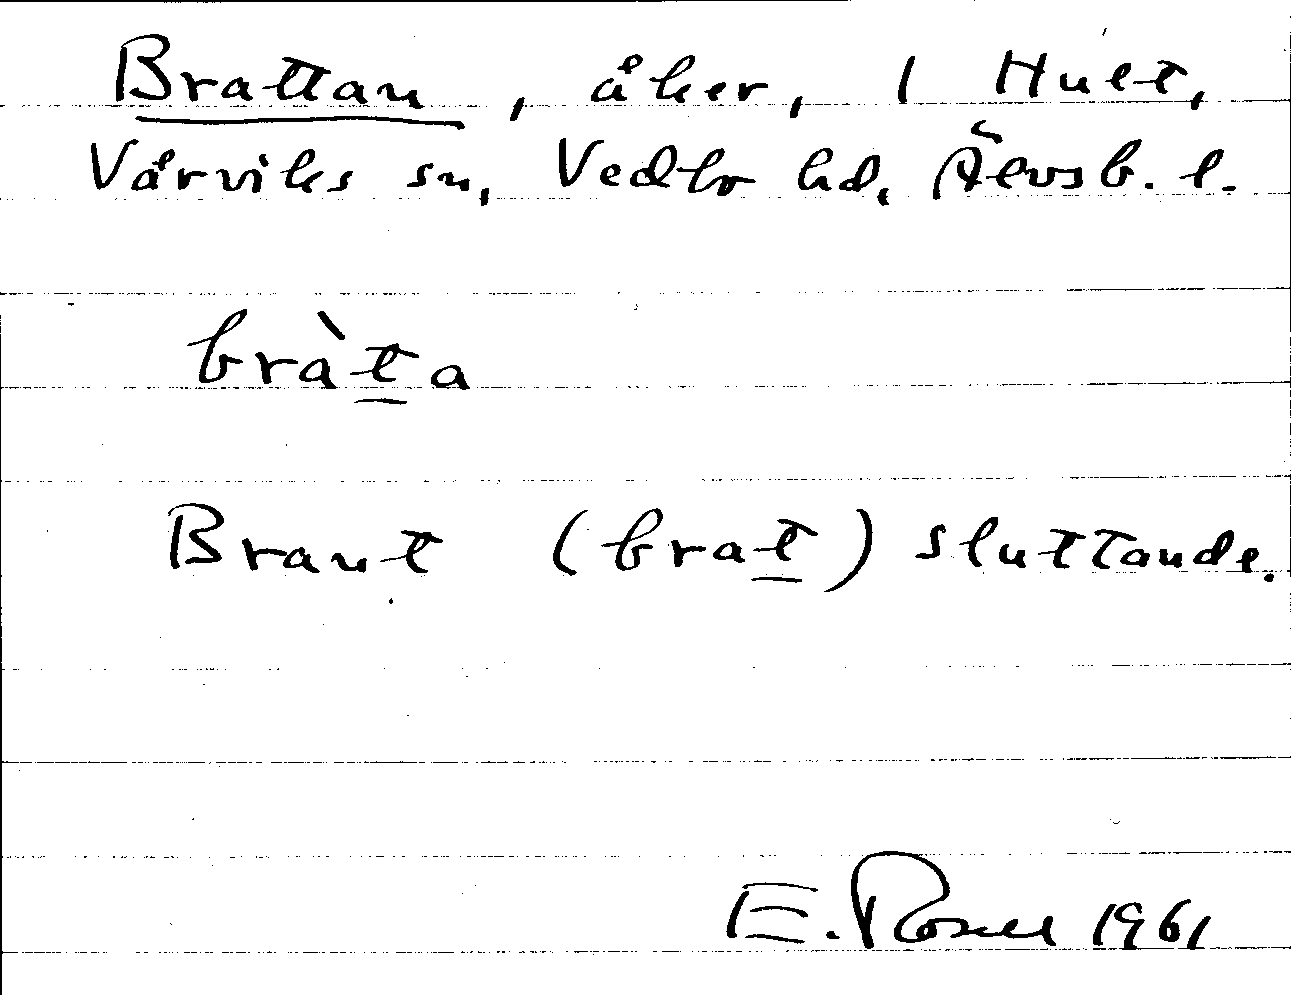 Brattan, åker, 1 Hult,
Vårviks sn, Vedbo hd, Älvsb. l.
bràt̲a
Brant (brat̲) sluttande.
E. Rosell 1961